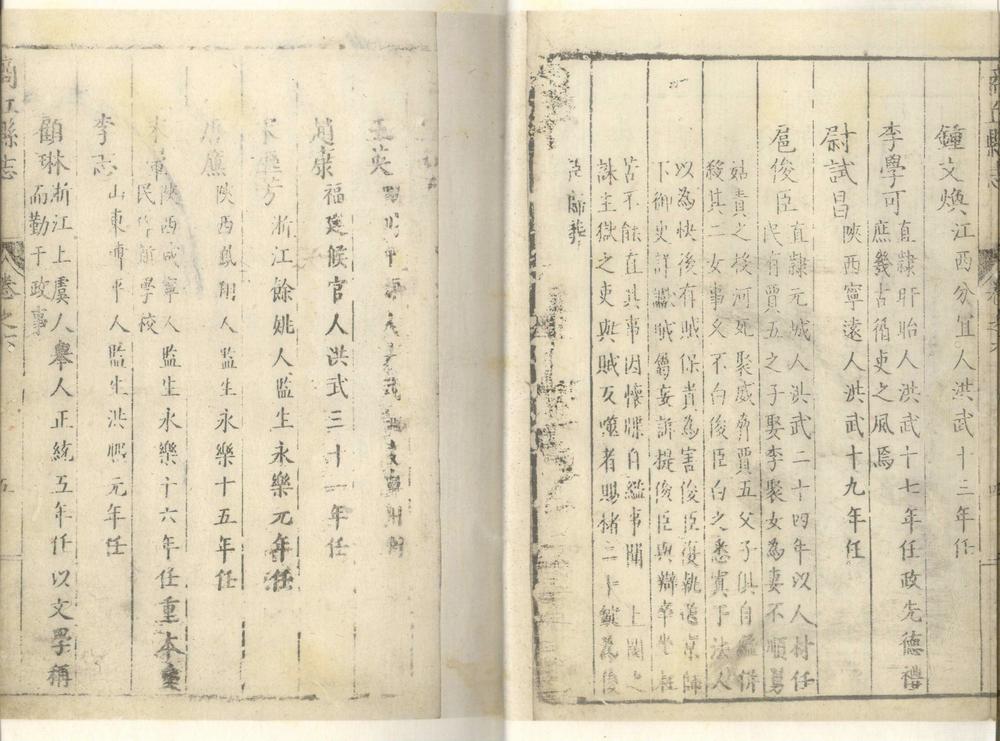 鍾文煥江西分宜人洪武十三年任
李學可直隸盱眙人洪武十七年任政先德禮
庶幾古循吏之風焉
尉試昌陝西寧遠人洪武十九年任
扈俊臣直隸元城人洪武二十四年以人材任
民有賈五之子娶李聚女為妻不順舅
姑責之投河死聚威脅賈五父子俱自縊併
殺其二女事久不白俊臣白之悉寘于法人
以為快後有賊保貴為害俊臣復執送京師
下御史詳讞賊黨妄訴提俊臣與辯
苦不能直其事因懷牒自縊事聞上
誅主獄之吏與賊反噬者賜楮二十錠為後
歸葬
王英
趙康福建候官人洪武三十一年任
宋 芳浙江餘姚人監生永樂元年任
唐廉陝西鳳翔人監生永樂十五年任
陝西咸寧人監生永樂十六年任重本愛
民作新學校
李志山東博平人監生洪熙元年任
顧琳浙江上虞人舉人正統五年任以文學稱
而勤于政事
縣志 卷之六 五